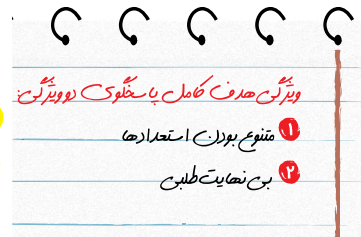 ویژگی هدف کامل پاسخگوی دو ویژگی:
۱ متنوع بودن استعدادها
۲ بی‌نهایت‌طلبی